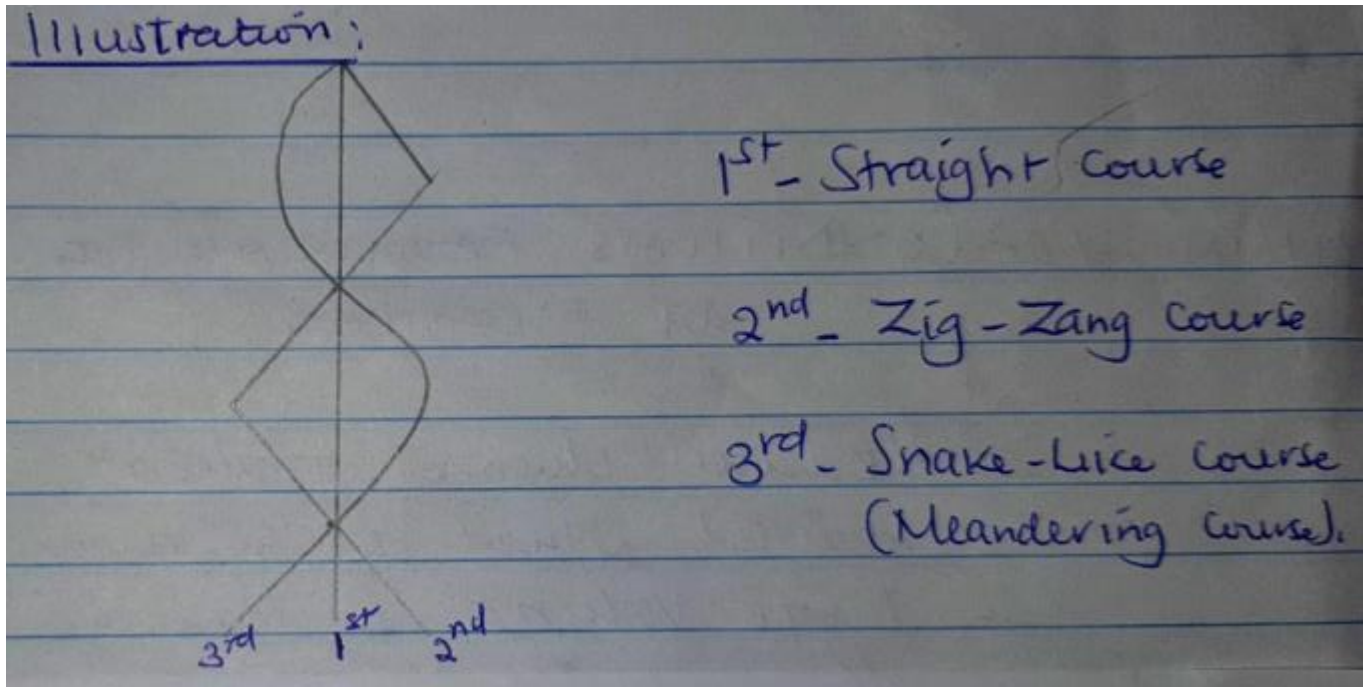 Illustration:
1st - Straight Course
2nd - Zig-Zang Course
3rd - Snake-Like Course
(Meandering Course).
3rd 1st 2nd